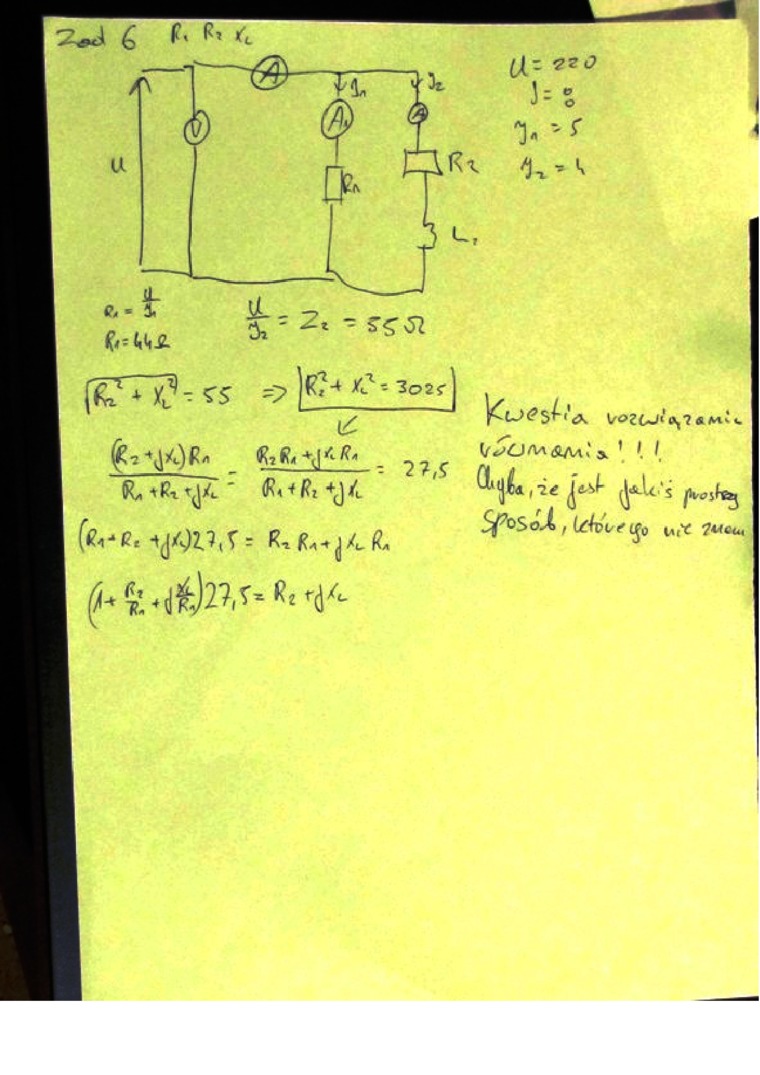 Zad 6 R₁ R₂ XL
A
J₁
J₂
U = 220
J = 8
V
A₁
A
J₁ = 5
U
R₁
R₂
J₂ = 4
L₂
R₁ = U/J₁
R₁ = 44Ω
U/J₂ = Z₂ = 55Ω
√(R₂² + XL²) = 55 => R₂² + XL² = 3025
(R₂+jXL)R₁/(R₁+R₂+jXL) = (R₂R₁+jXLR₁)/(R₁+R₂+jXL) = 27,5
(R₁+R₂+jXL)27,5 = R₂R₁+jXLR₁
(1+R₂/R₁+jXL/R₁)27,5 = R₂+jXL
Kwestia rozwiązanie
równania!!!
Chyba, że jest jakiś prostszy
sposób, którego nie znam